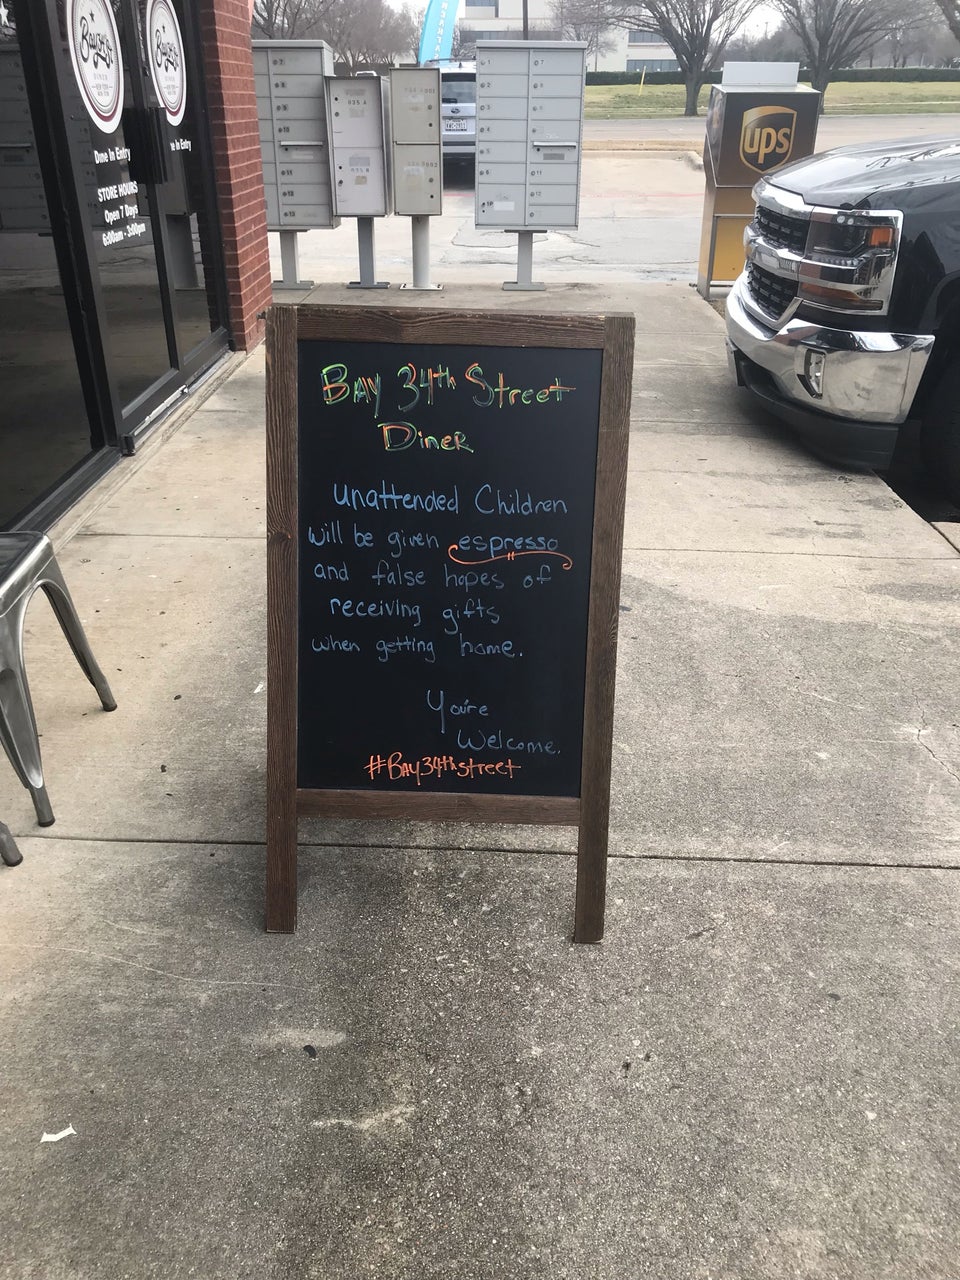 Bay 34th Street
Diner
unattended Children
will be given espresso
and false hopes of
receiving gifts
when getting home.
You're
Welcome.
#Bay34thstreet
ups
DINER
NEW YORK
Dine In Entry
STORE HOURS
Open 7 Days
6:00am - 3:00pm